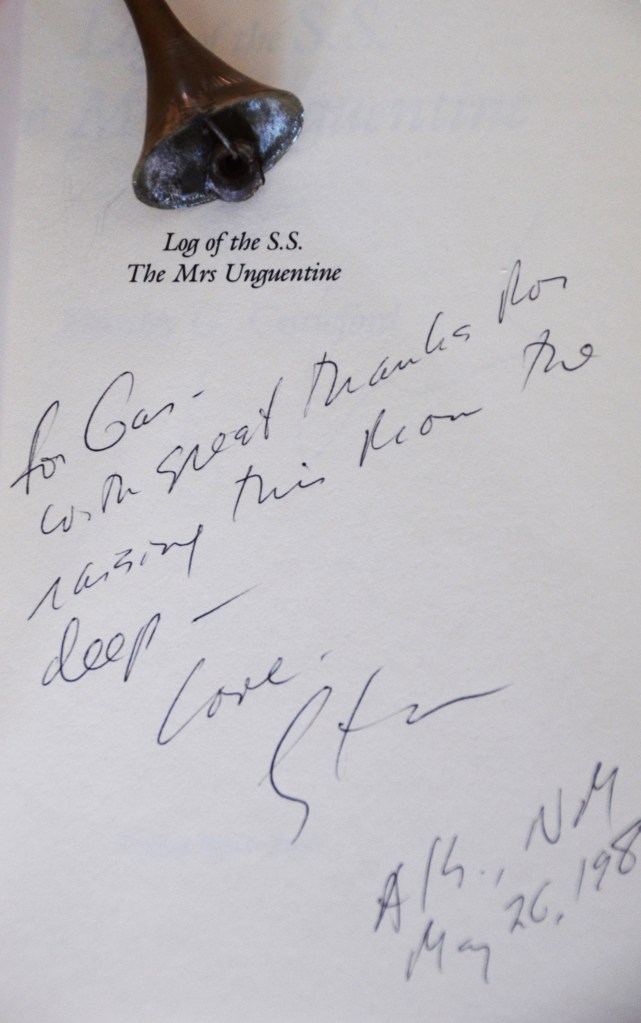 Log of the S.S.
The Mrs Unguentine
for Gus -
with great thanks for
raising this from the
deep -
Love,
Stan
Alb., NM
May 26, 198